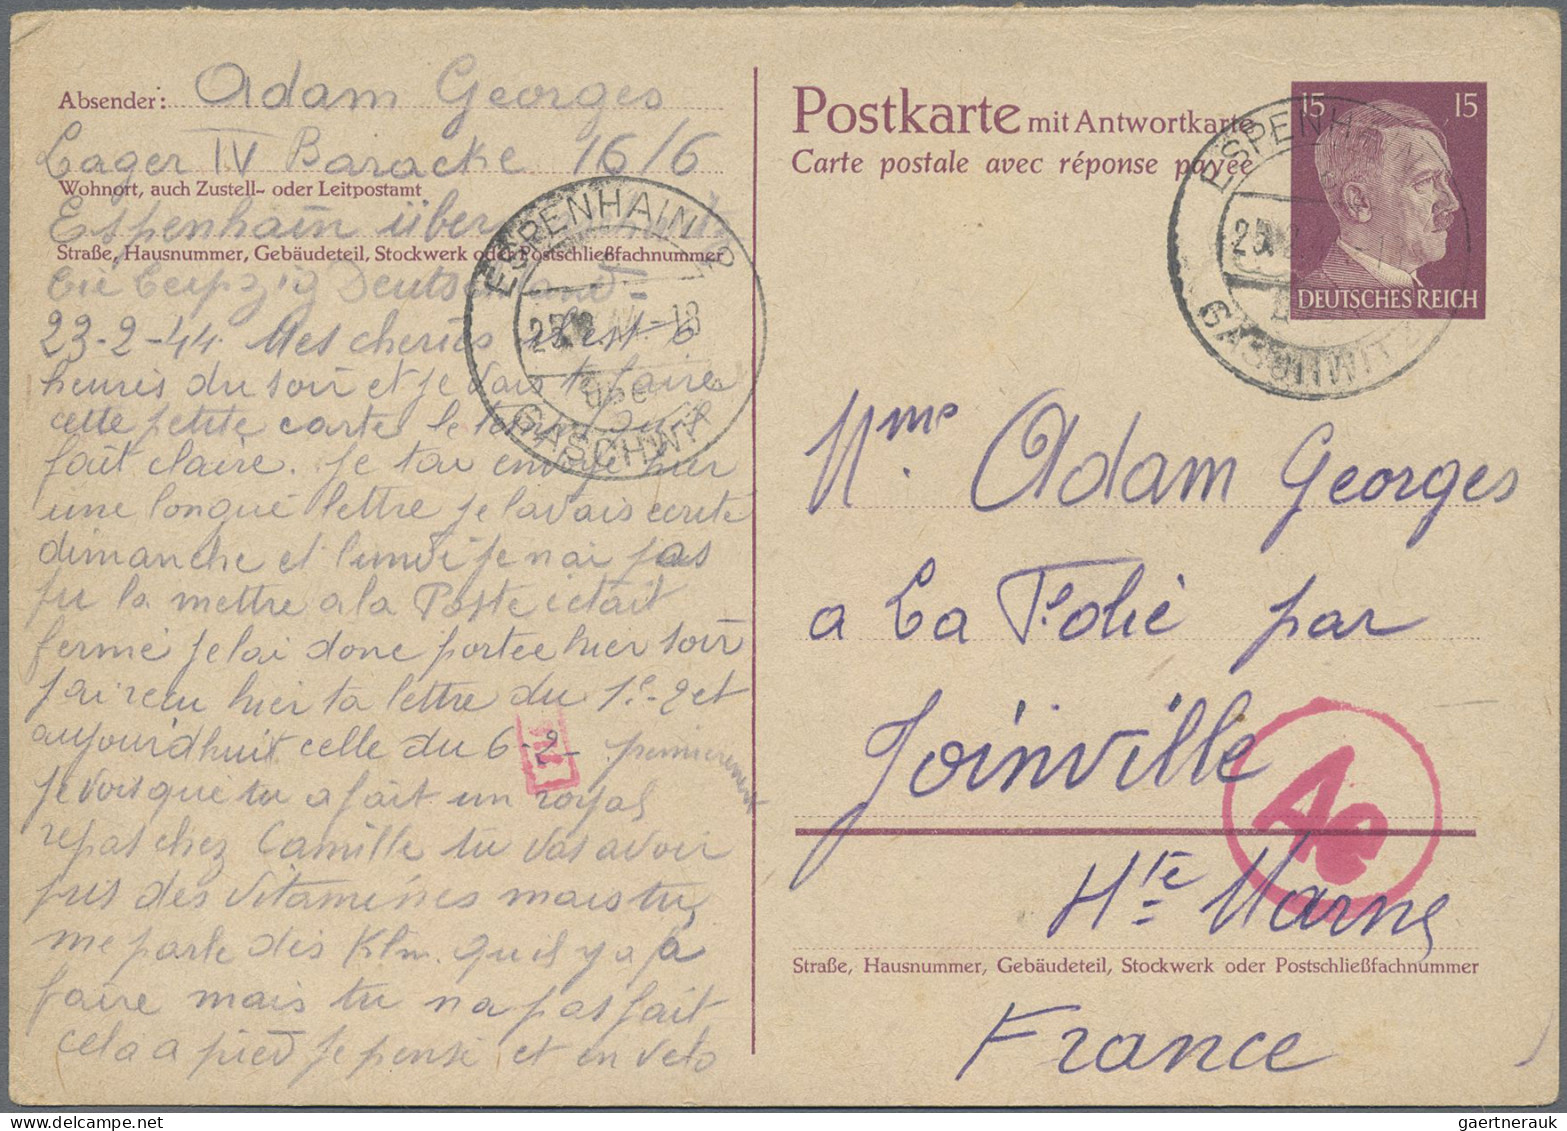 Absender: Adam Georges
Lager IV Baracke 16/6
Wohnort, auch Zustell- oder Leitpostamt
Espenhain über
Straße, Hausnummer, Gebäudeteil, Stockwerk oder Postschließfachnummer
Leipzig Deutschland
23-2-44. Mes cheries c'est 6
heures du soir et je vais te faire
cette petite carte le temps qu'il
fait claire. Je tai envoyé hier
une longue lettre je lavais ecrite
dimanche et lundi je nai pas
pu la mettre a la Poste cetait
fermé je lai donc portee hier soir
jai recu hier ta lettre du 1e-2 et
aujourdhuit celle du 6-2- premierement
je vois que tu a fait un royal
repas chez Camille tu vas avoir
pris des vitamines mais tu
me parle des Klm. qu il y a a
faire mais tu na pas fait
cela a pied je pense et en velo
ESPENHAIN
GASCHWITZ
Postkarte mit Antwortkarte
Carte postale avec réponse payée
15 15
DEUTSCHES REICH
ESPENHAIN
GASCHWITZ
Mme Adam Georges
a La Folie par
Joinville
Ae
Hte Marne
Straße, Hausnummer, Gebäudeteil, Stockwerk oder Postschließfachnummer
France
gaertnerauk